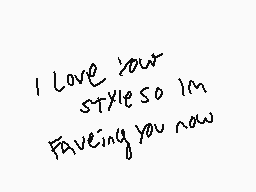 I Love your
style so Im
Faveing you now